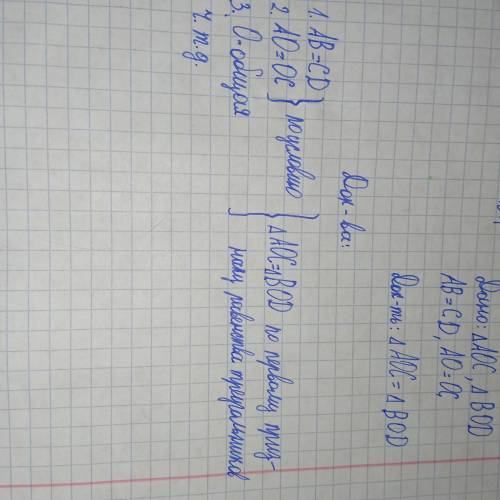 Дано: △AOC, △BOD
AB=CD, AO=OC
Док-ть: △AOC=△BOD
Док-ва:
1. AB=CD } по условию
2. AO=OC
3. O-общая
} △AOC=△BOD по первому приз-
наку равенства треугольников
ч.т.д.